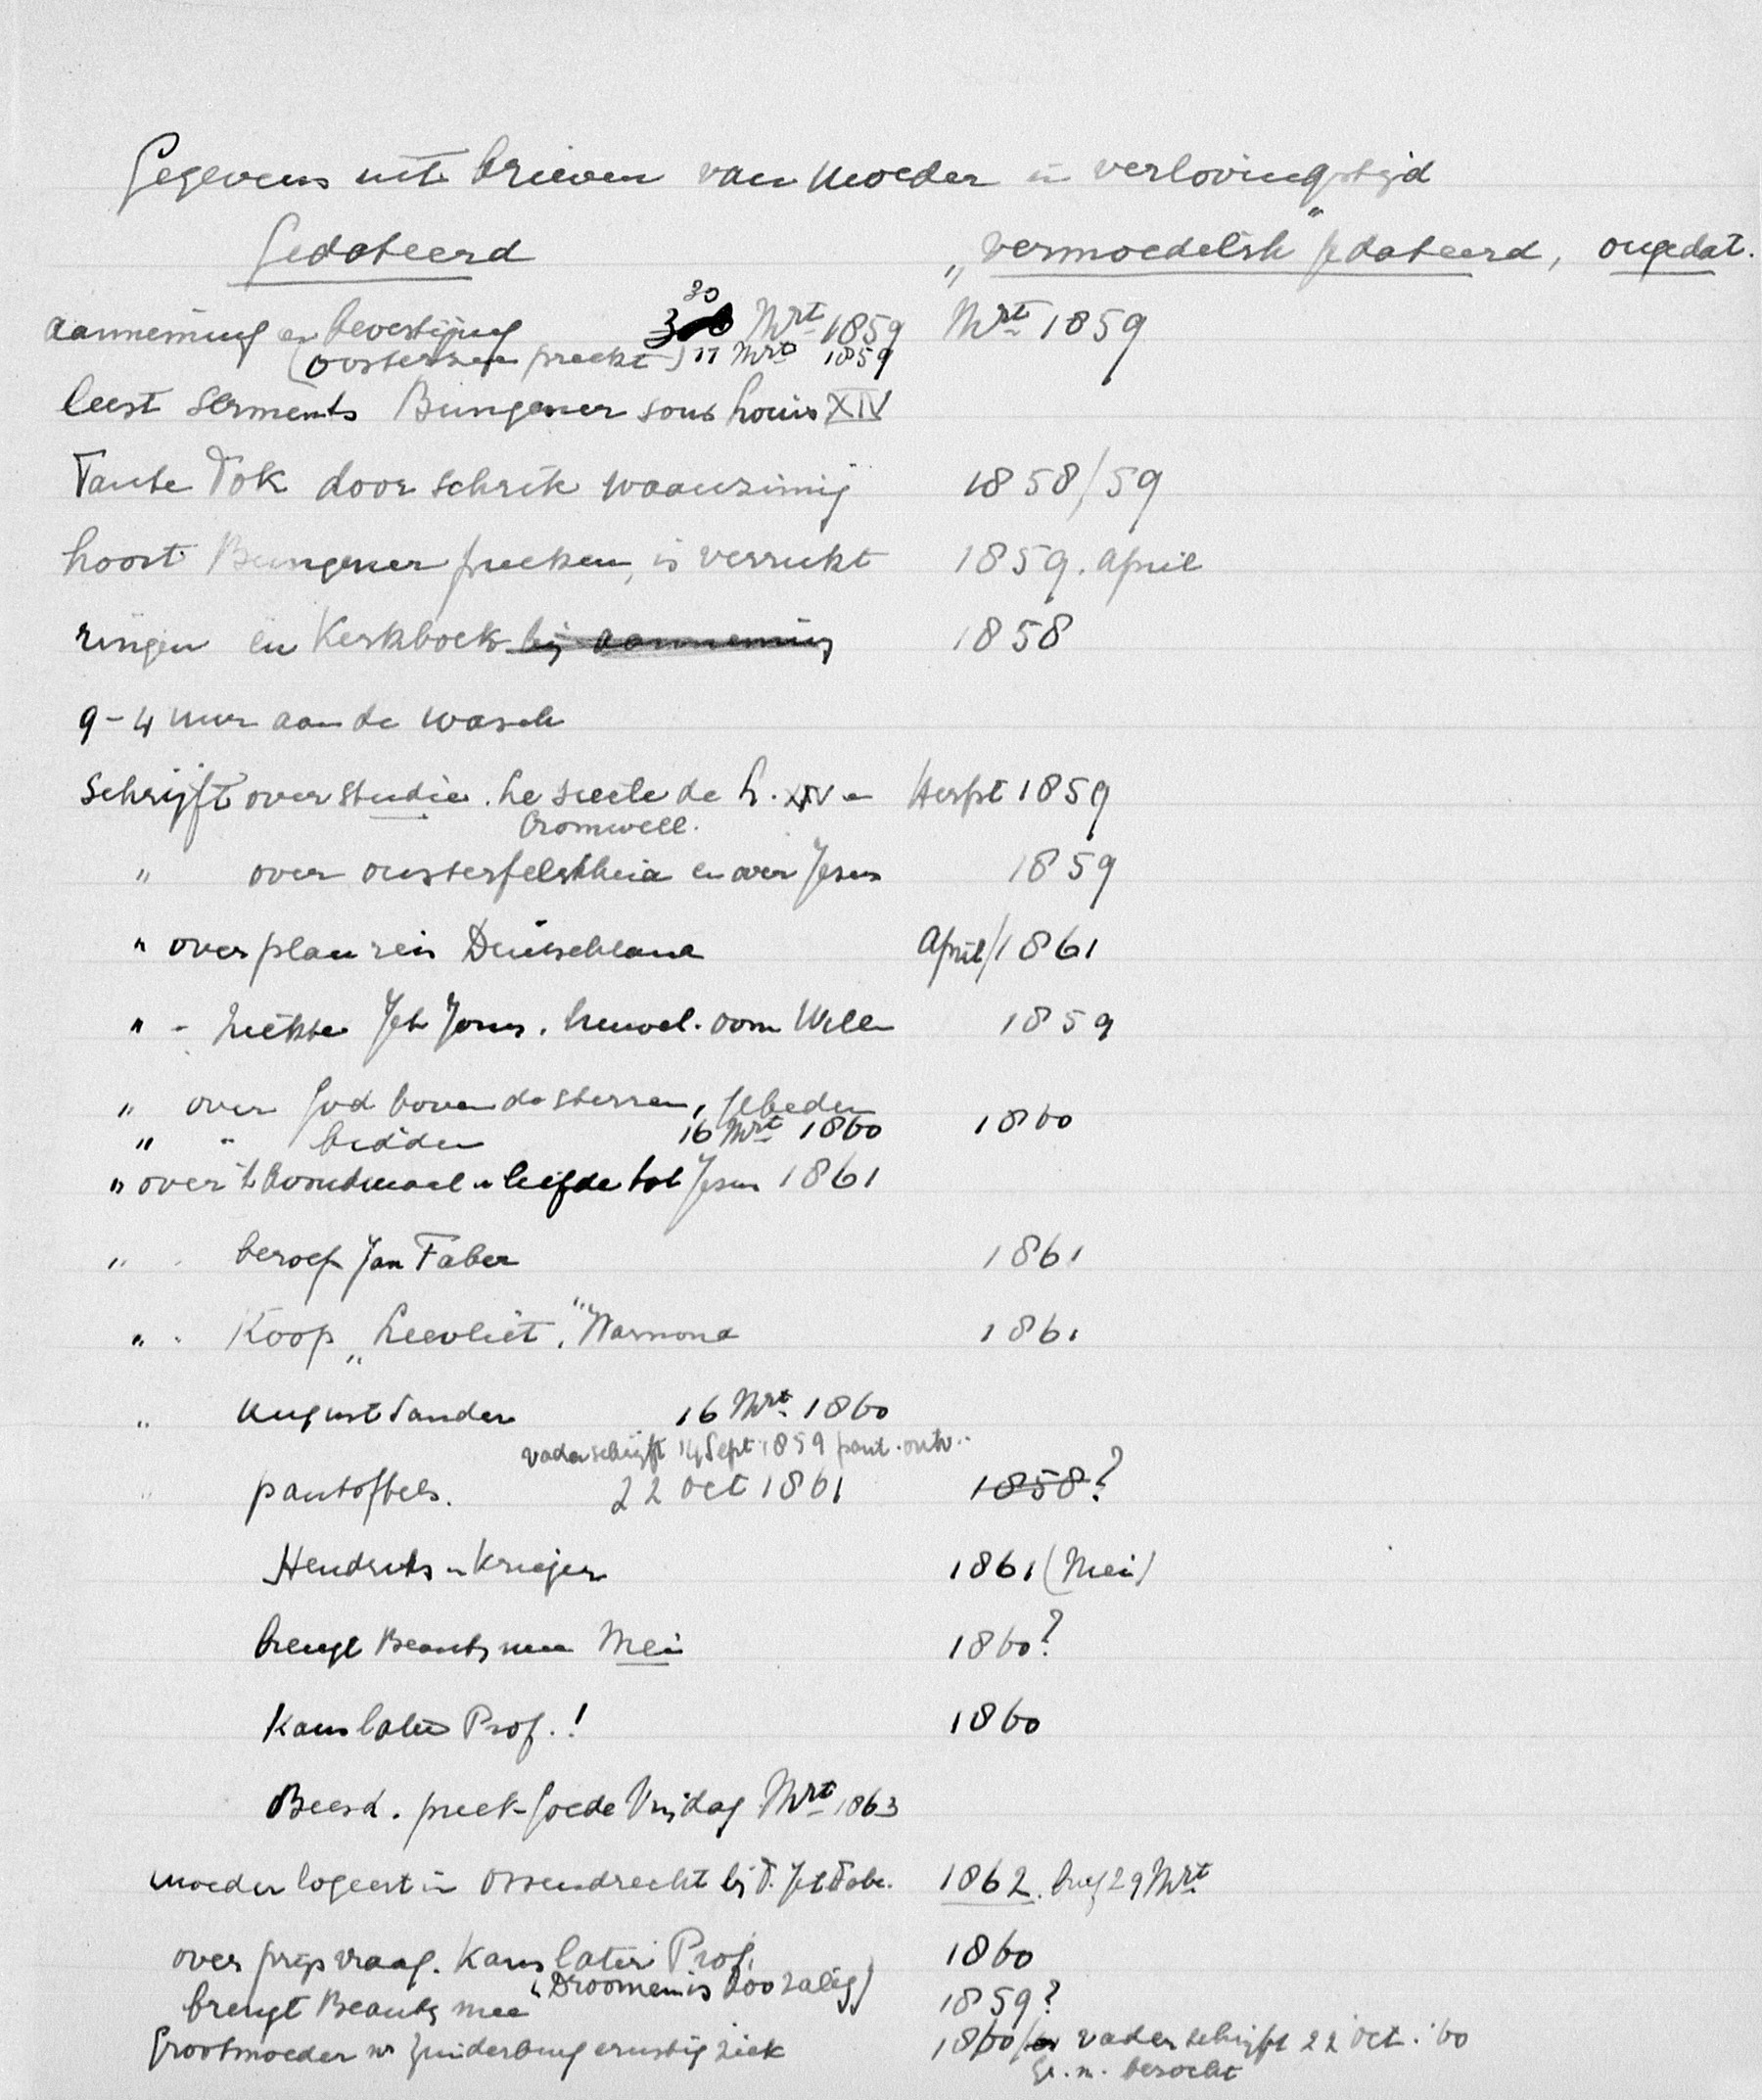 Gegevens uit brieven van Moeder in verlovingstijd
Gedateerd „vermoedelijk" gedateerd, ongedat.
30
aanneming en bevestiging Mrt 1859 Mrt 1859
(Oosterzee preekt) 17 Mrt 1859
leest Serments Bungener sous Louis XIV
Tante Tok door schrik waanzinnig 1858/59
hoort Bungener preeken, is verrukt 1859. April
ringen en Kerkboek bij aanneming 1858
9-4 uur aan de wasch
Schrijft over studie. Le siecle de L. XIV en Herfst 1859
Cromwell.
" over onsterfelijkheid en over Jezus 1859
" over plan reis Duitschland April/1861
" - ziekte Jeb . huwel. oom Willem 1859
" over God boven de sterren, gebeden
" " bidden 16 Mrt 1860 1860
" over 't Avondmaal en liefde tot Jezus 1861
" " beroep Jan Faber 1861
" " Koop „Leevliet", Warmond 1861
" August Sander 16 Mrt 1860
vader schrijft 14 Sept 1859 pant. ontv.
" pantoffels. 22 Oct 1861 1858?
Hendriks en Krieger 1861 (Mei)
brengt Beauty mee Mei 1860?
Kans later Prof.! 1860
Beesd. preek Goede Vrijdag Mrt 1863
moeder logeert in Ossendrecht bij T. Jeb 1862. brief 29 Mrt
over prijsvraag. Kans later Prof. 1860
(Droomen is zoo zalig)
brengt Beauty mee 1859?
Grootmoeder ernstig ziek 1860/ vader schrijft 22 Oct. '60
Gr. m. bezocht